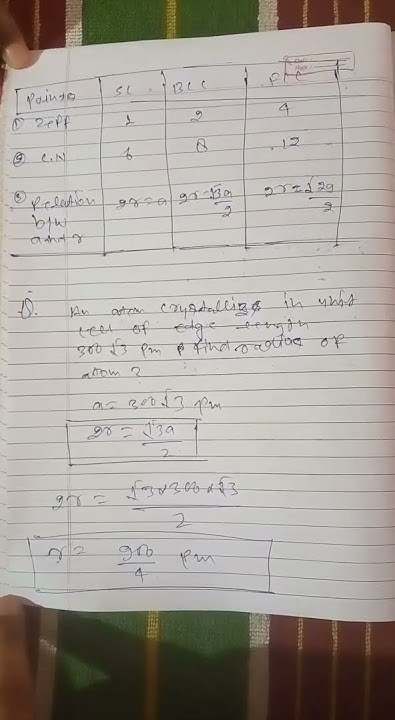 Points SC BCC FCC
① Zeff 1 2 4
② C.N 6 8 12
③ Relation 2r=a 2r=√3a/2 2r=√2a/2
b/w
a and r
Q. An atom crystallizes in unit
cell of edge length
300√3 pm find radius of
atom?
a = 300√3 pm
2r = √3a/2
2r = √3×300×√3/2
r = 900/4 pm